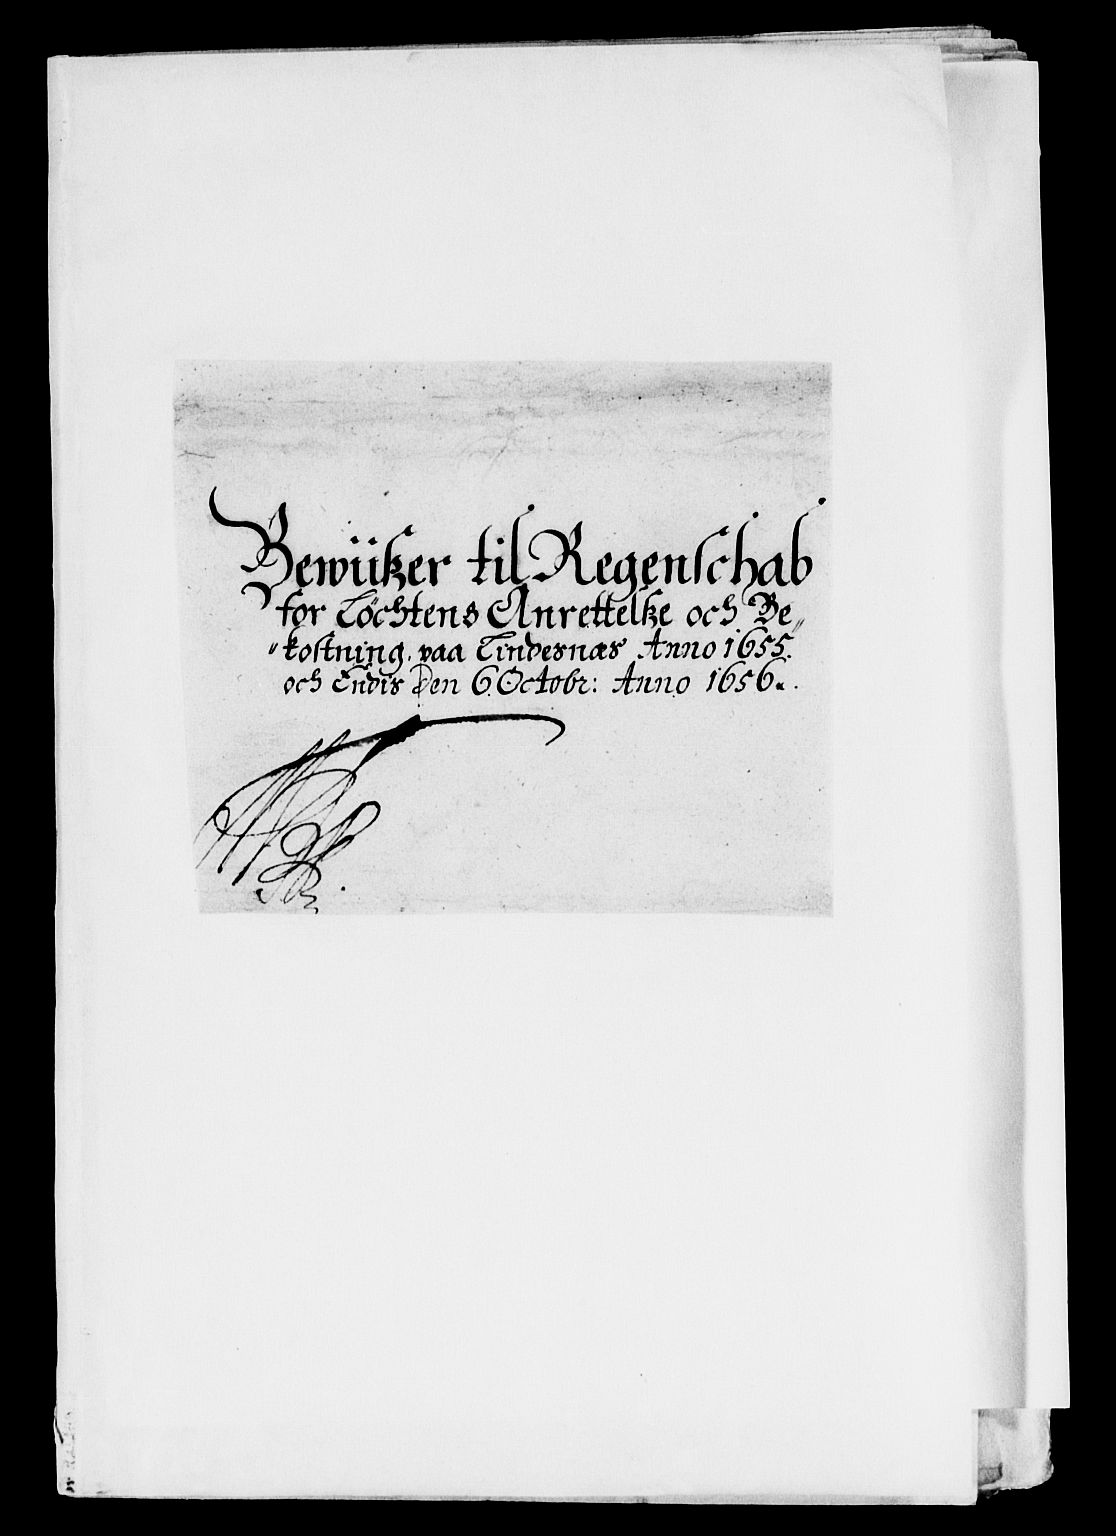 Bewiißer til Regenschab
for Löchtens Anrettelße och Be„
„kostning. paa Lindesnæs Anno 1655.
och Endis Den 6 Octobr: Anno 1656.